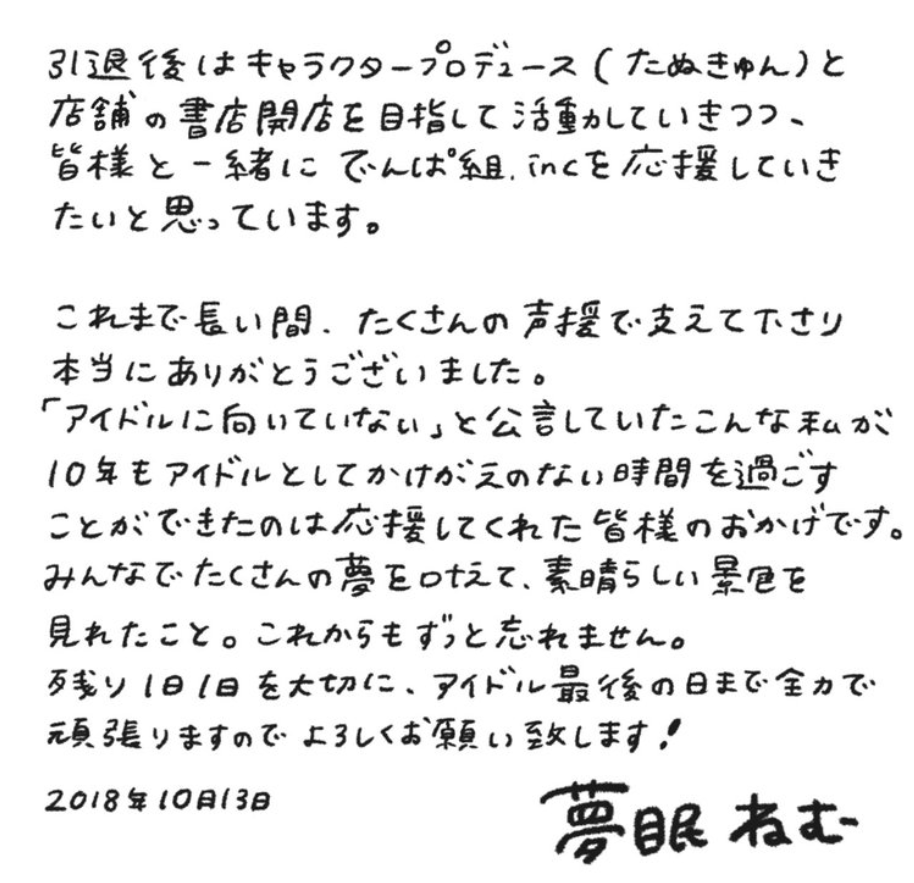 引退後はキャラクタープロデュース(たぬきゅん)と
店舗の書店開店を目指して活動していきつつ、
皆様と一緒にでんぱ組.incを応援していき
たいと思っています。
これまで長い間、たくさんの声援で支えて下さり
本当にありがとうございました。
「アイドルに向いていない」と公言していたこんな私が
10年もアイドルとしてかけがえのない時間を過ごす
ことができたのは応援してくれた皆様のおかげです。
みんなでたくさんの夢を叶えて、素晴らしい景色を
見れたこと。これからもずっと忘れません。
残り1日1日を大切に、アイドル最後の日まで全力で
頑張りますのでよろしくお願い致します!
2018年10月13日
夢眠ねむ